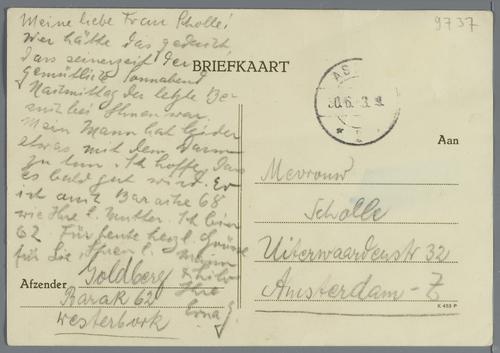 Meine liebe Frau Scholle!
Wer hätte das gedacht,
dass seinerzeit der
gemütliche Sonnabend
Nachmittag der letzte Be-
such bei Ihnen war.
Mein Mann hat leider
etwas mit dem Darm
zu tun. Ich hoffe, dass
es bald gut wird. Er
ist auch Baracke 68
wie Ihre l. Mutter. Ich bin
62. Für heute herzl. Grüsse
für Sie, Ihren l. Mann
Ihre
Erna G.
9737
BRIEFKAART
AS
30.6. 3. 9
Aan
Mevrouw
Scholle
Uiterwaardenstr 32
Amsterdam-Z
K 453 P
Afzender
Goldberg
Barak 62
Westerbork